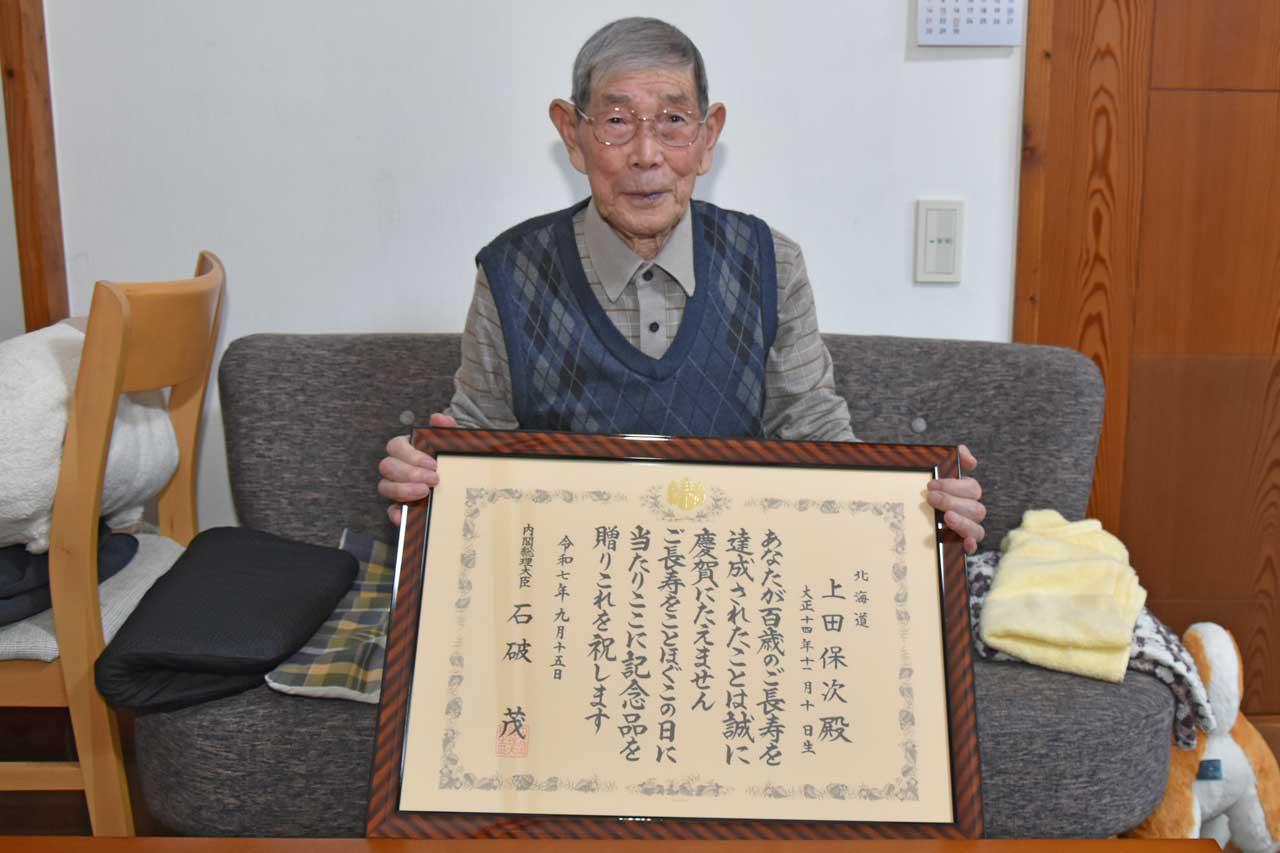 北海道
上田保次殿
大正十四年十一月十日生
あなたが百歳のご長寿を
達成されたことは誠に
慶賀にたえません
ご長寿をことほぐこの日に
当たりここに記念品を
贈りこれを祝します
令和七年九月十五日
内閣総理大臣 石破 茂